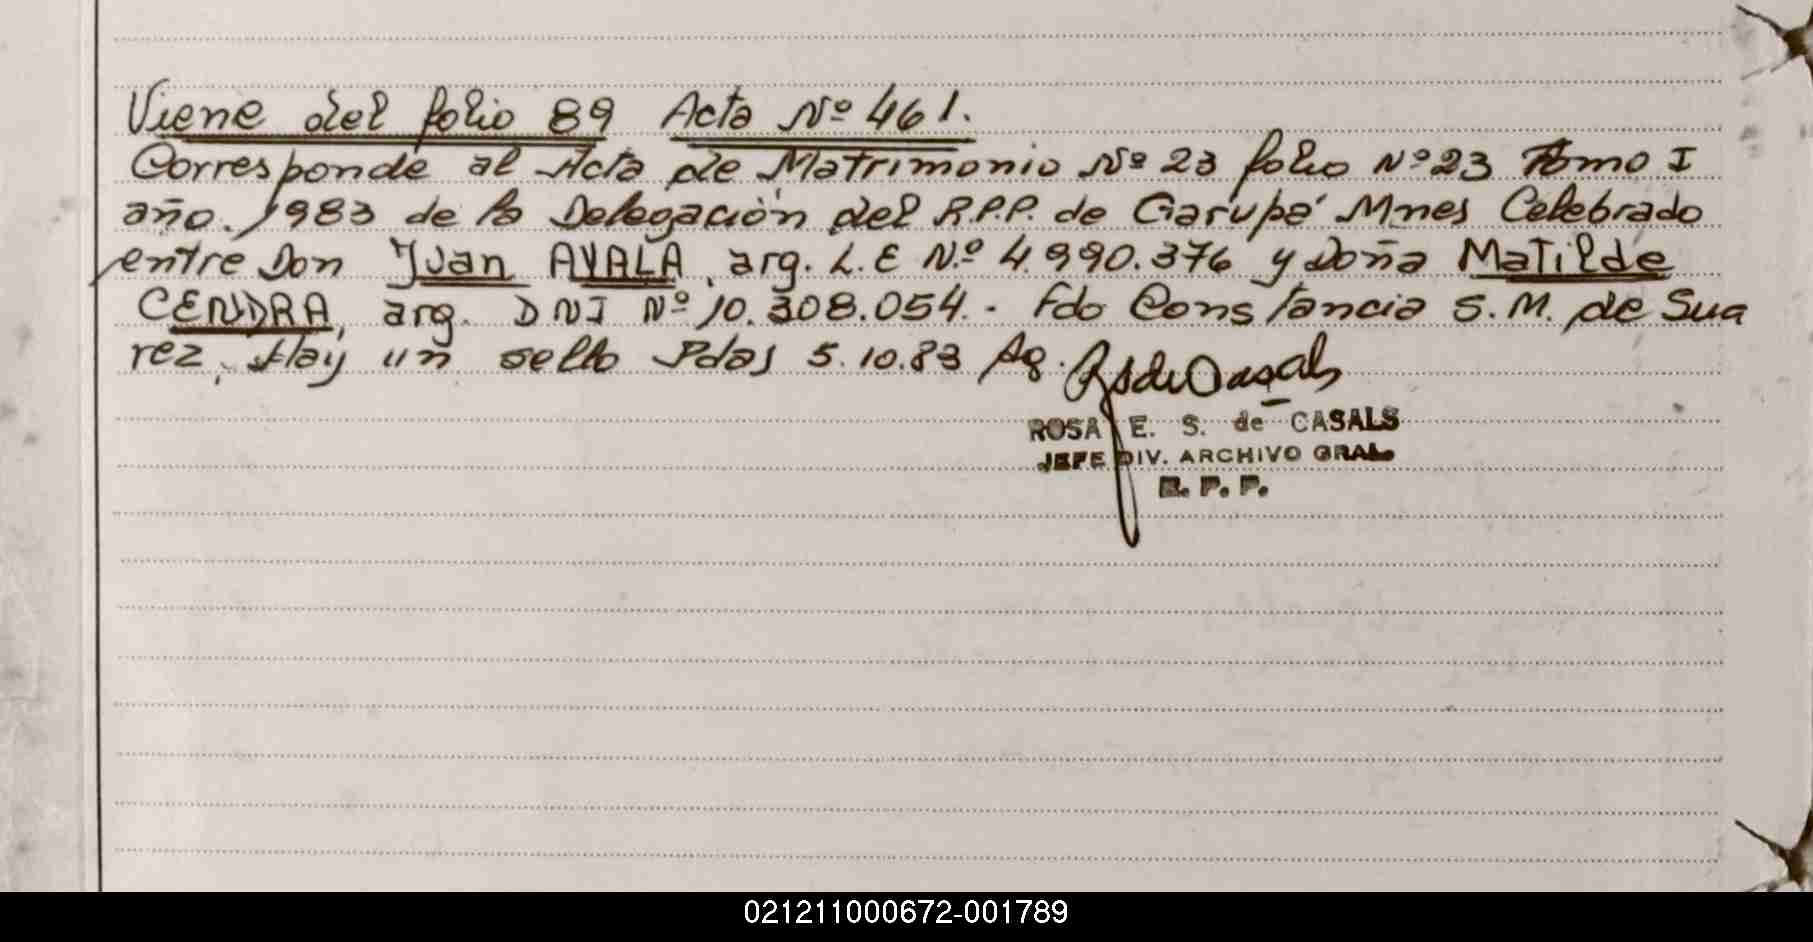 Viene del folio 89 Acta Nº 461.
Corresponde al Acta de Matrimonio Nº 23 folio Nº 23 Tomo I
año. 1983 de la Delegación del R.P.P. de Garupá Mnes Celebrado
entre Don Juan AYALA, arg. L.E Nº 4.990.376 y Doña Matilde
CENDRA, arg. DNI Nº 10.308.054. - Fdo Constancia S.M. de Sua
rez, Hay un sello Pdas 5.10.83 Ag.
ROSA E. S. de CASALS
JEFE DIV. ARCHIVO GRAL.
R. P. P.
021211000672-001789